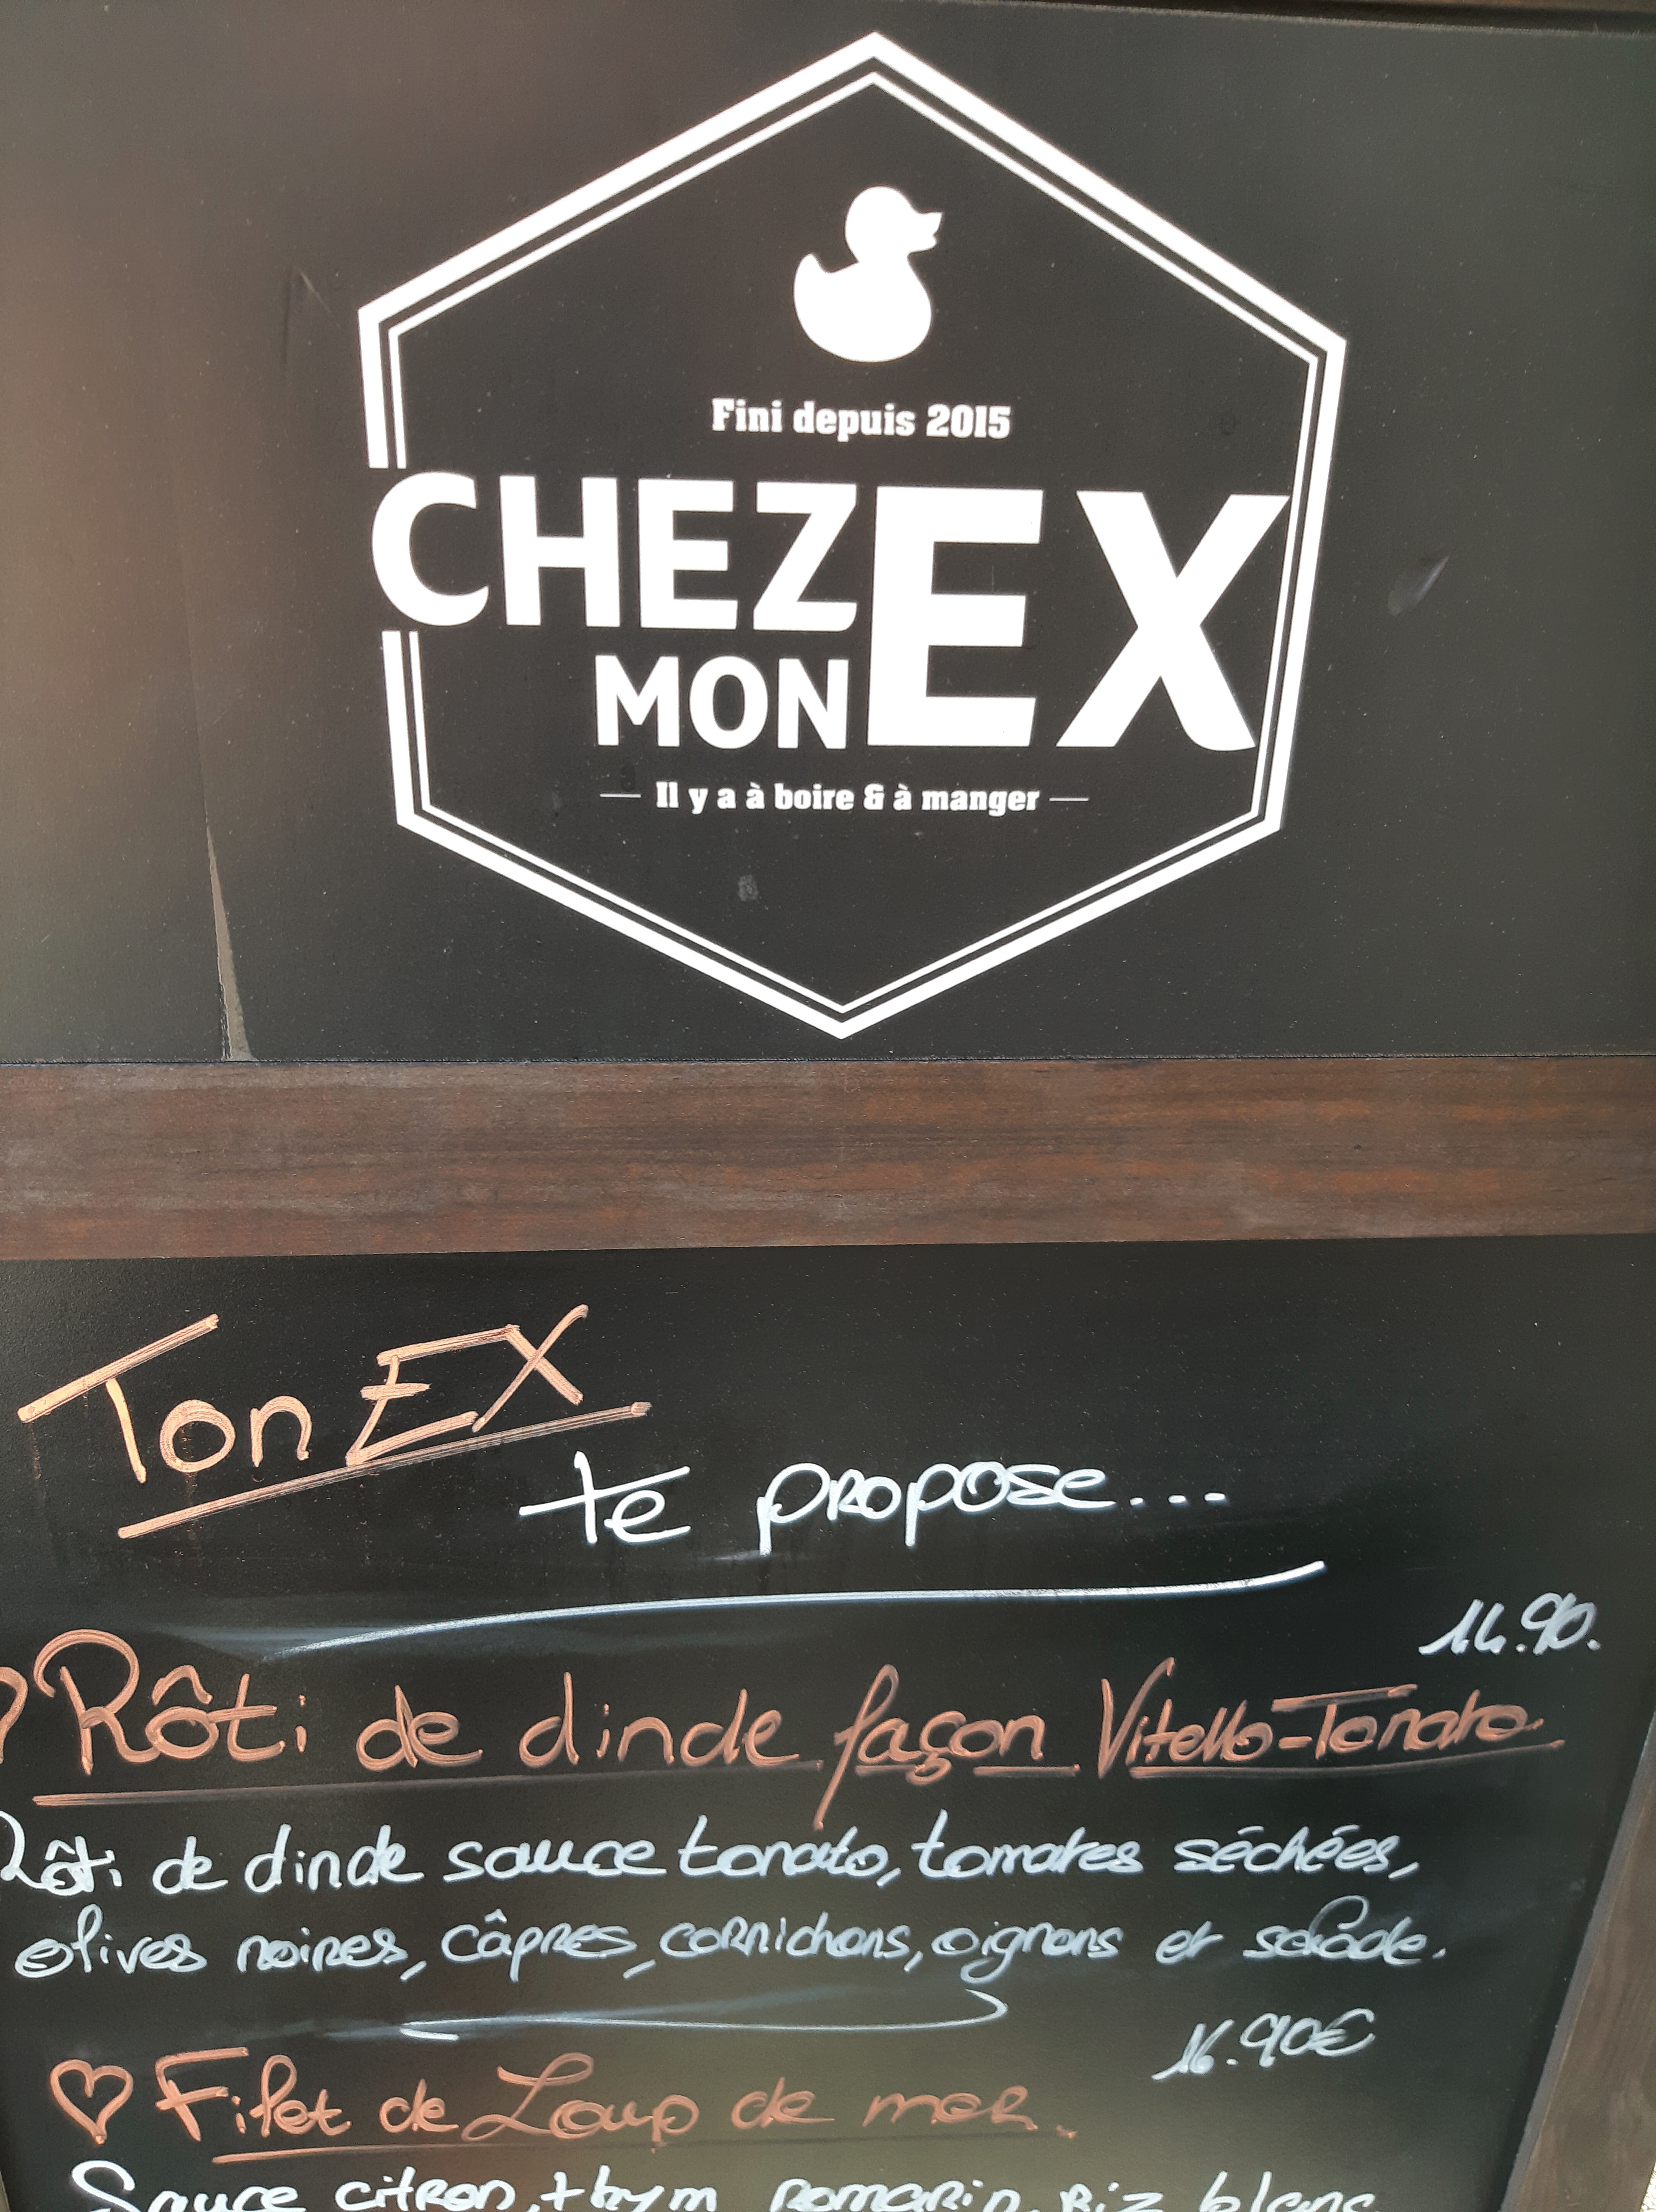 Fini depuis 2015
CHEZ
MON EX
Il y a à boire & à manger
Ton EX
te propose...
14.90.
Rôti de dinde façon Vitello-Tonato
Rôti de dinde sauce tonato, tomates séchées,
olives noires, câpres, cornichons, oignons et salade.
16.90€
Filet de Loup de mer.
Sauce citron, thym romarin, Riz blanc